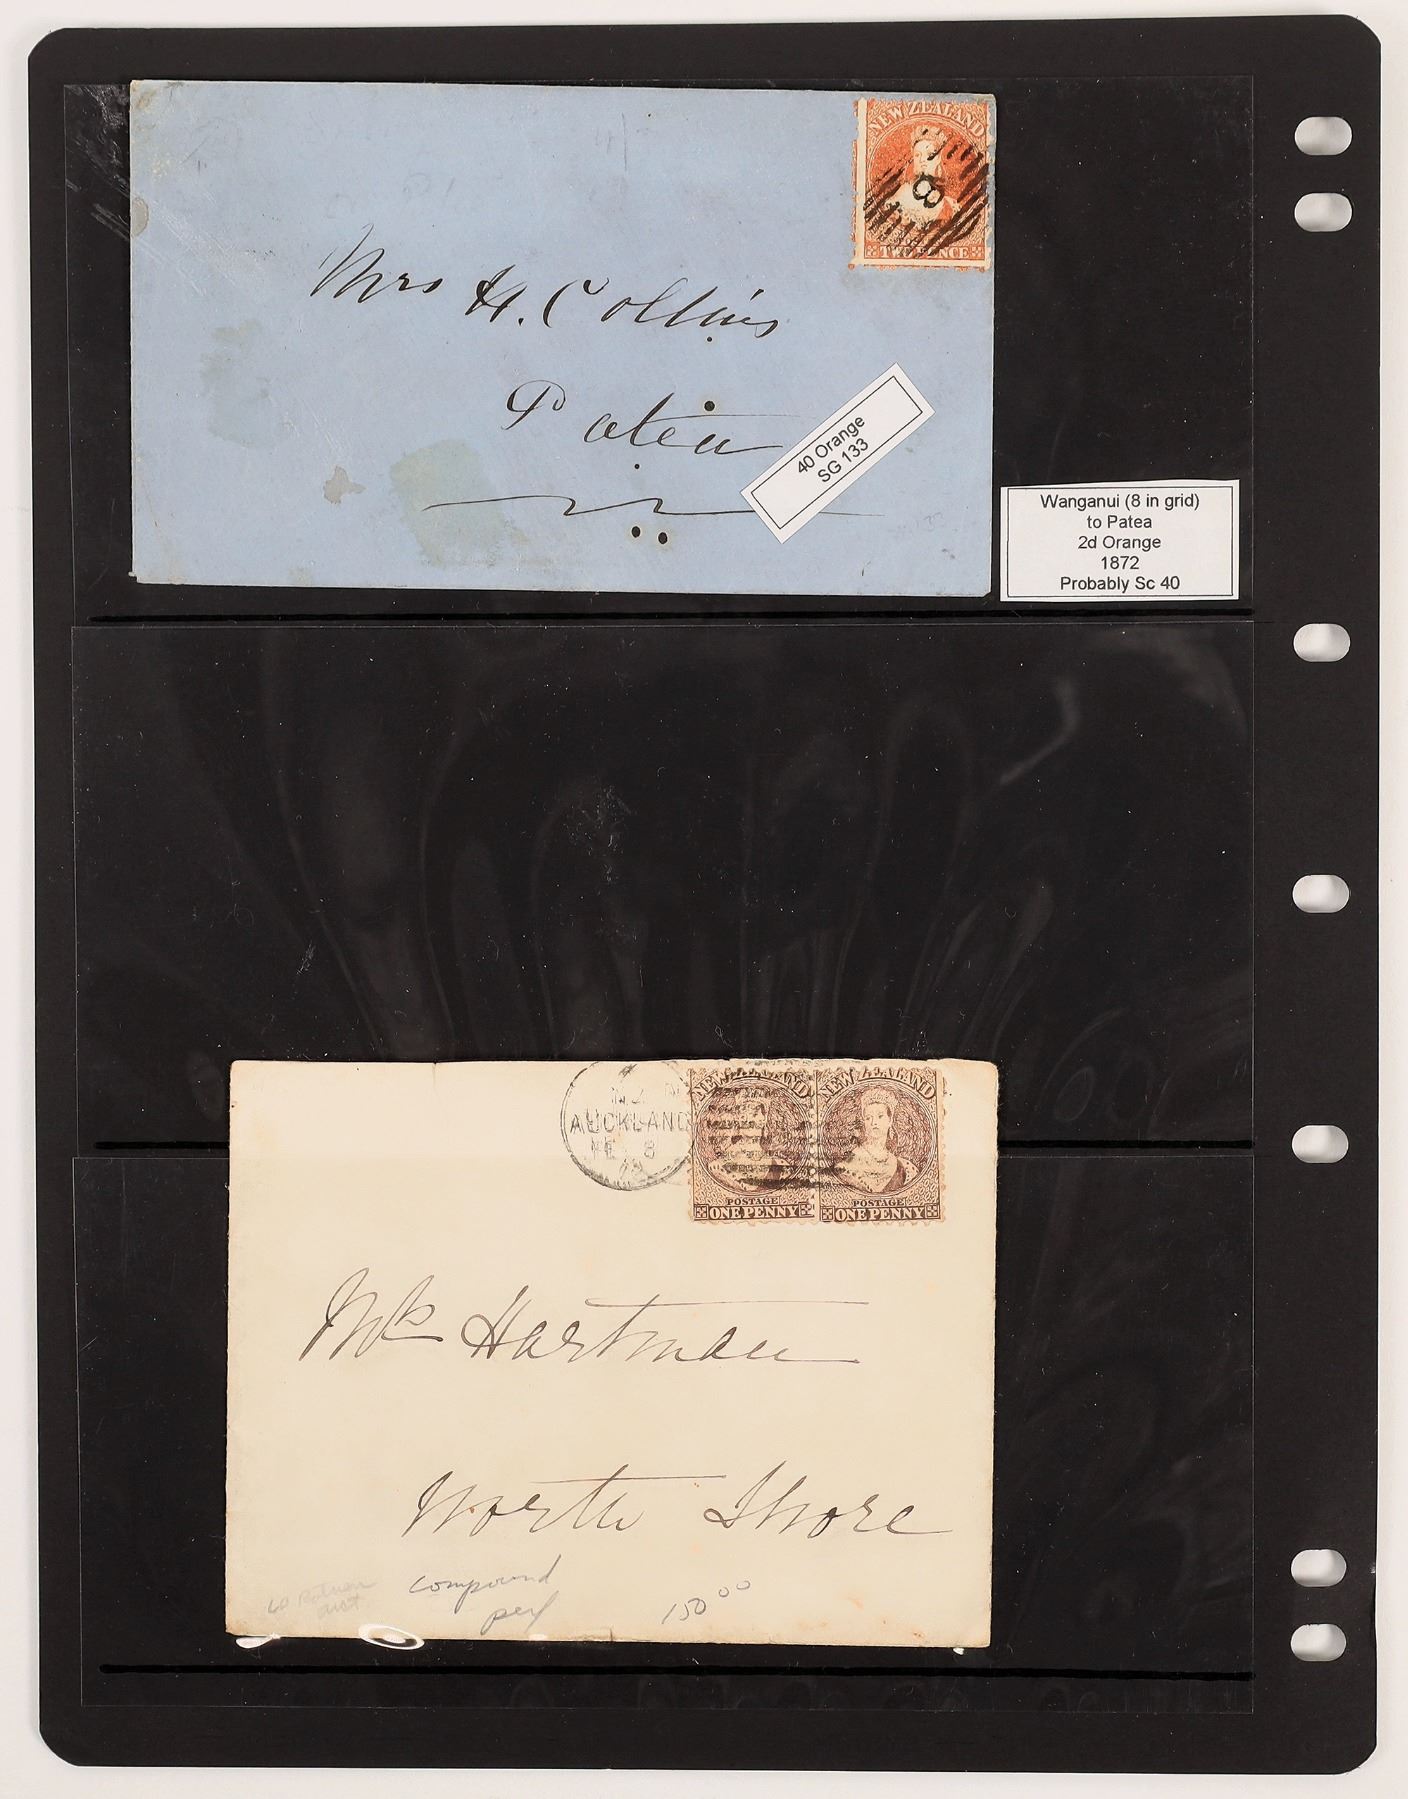 NEW ZEALAND
8
TWO PENCE
Mrs H. Collins
Patea
40 Orange
SG 133
Wanganui (8 in grid)
to Patea
2d Orange
1872
Probably Sc 40
AUCKLAND
FE 8
NEW ZEALAND
NEW ZEALAND
POSTAGE
POSTAGE
ONE PENNY
ONE PENNY
Mrs Hartman
North Shore
compound
perf
150 00